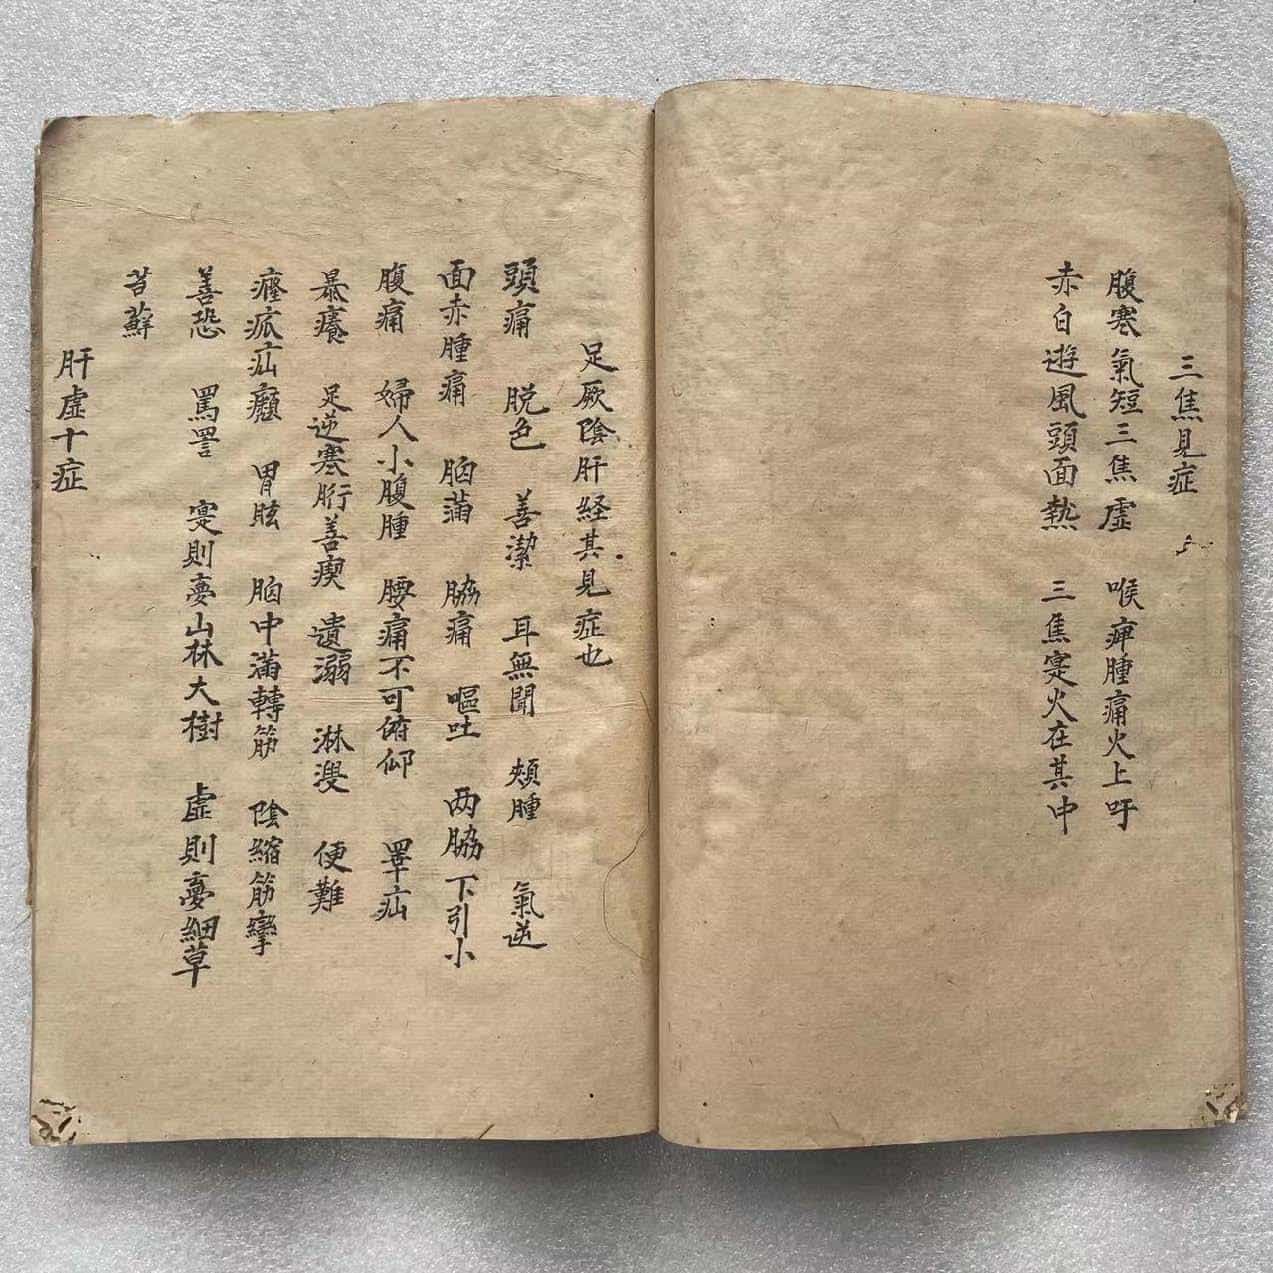 三焦見症
腹寒氣短三焦虛 喉痺腫痛火上吁
赤白遊風頭面熱 三焦寔火在其中
足厥陰肝経其見症也
頭痛 脱色 善潔 耳無聞 頰腫 氣逆
面赤腫痛 胸滿 脇痛 嘔吐 两脇下引小
腹痛 婦人小腹腫 腰痛不可俯仰 睪疝
暴癢 足逆寒胻善瘈 遺溺 淋溲 便難
瘛疭疝癩 胃眩 胸中滿轉筋 陰縮筋攣
善恐 罵詈 寔則夢山林大樹 虛則夢細草
苔蘚
肝虛十症